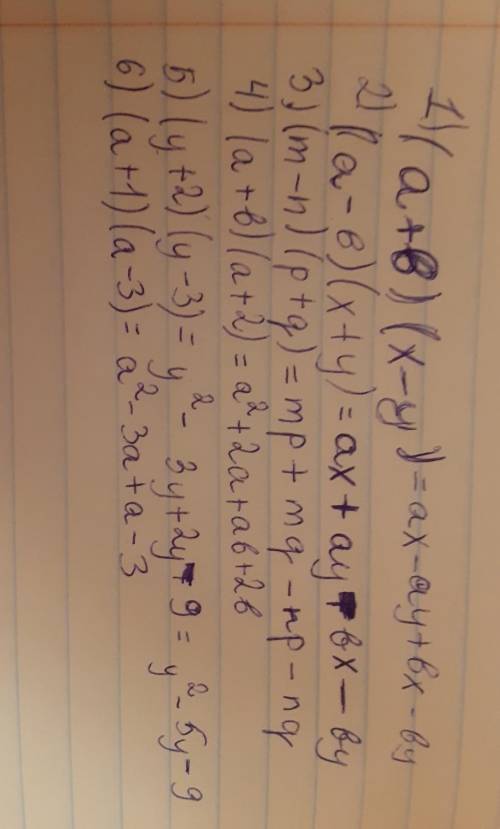 1) (a+в) (x-y) = ax-ay+вx-вy
2) (a-в) (x+y) = ax+ay-вx-вy
3) (m-n) (p+q) = mp+mq-np-nq
4) (a+в) (a+2) = a²+2a+aв+2в
5) (y+2) (y-3) = y²-3y+2y-9 = y²-5y-9
6) (a+1) (a-3) = a²-3a+a-3